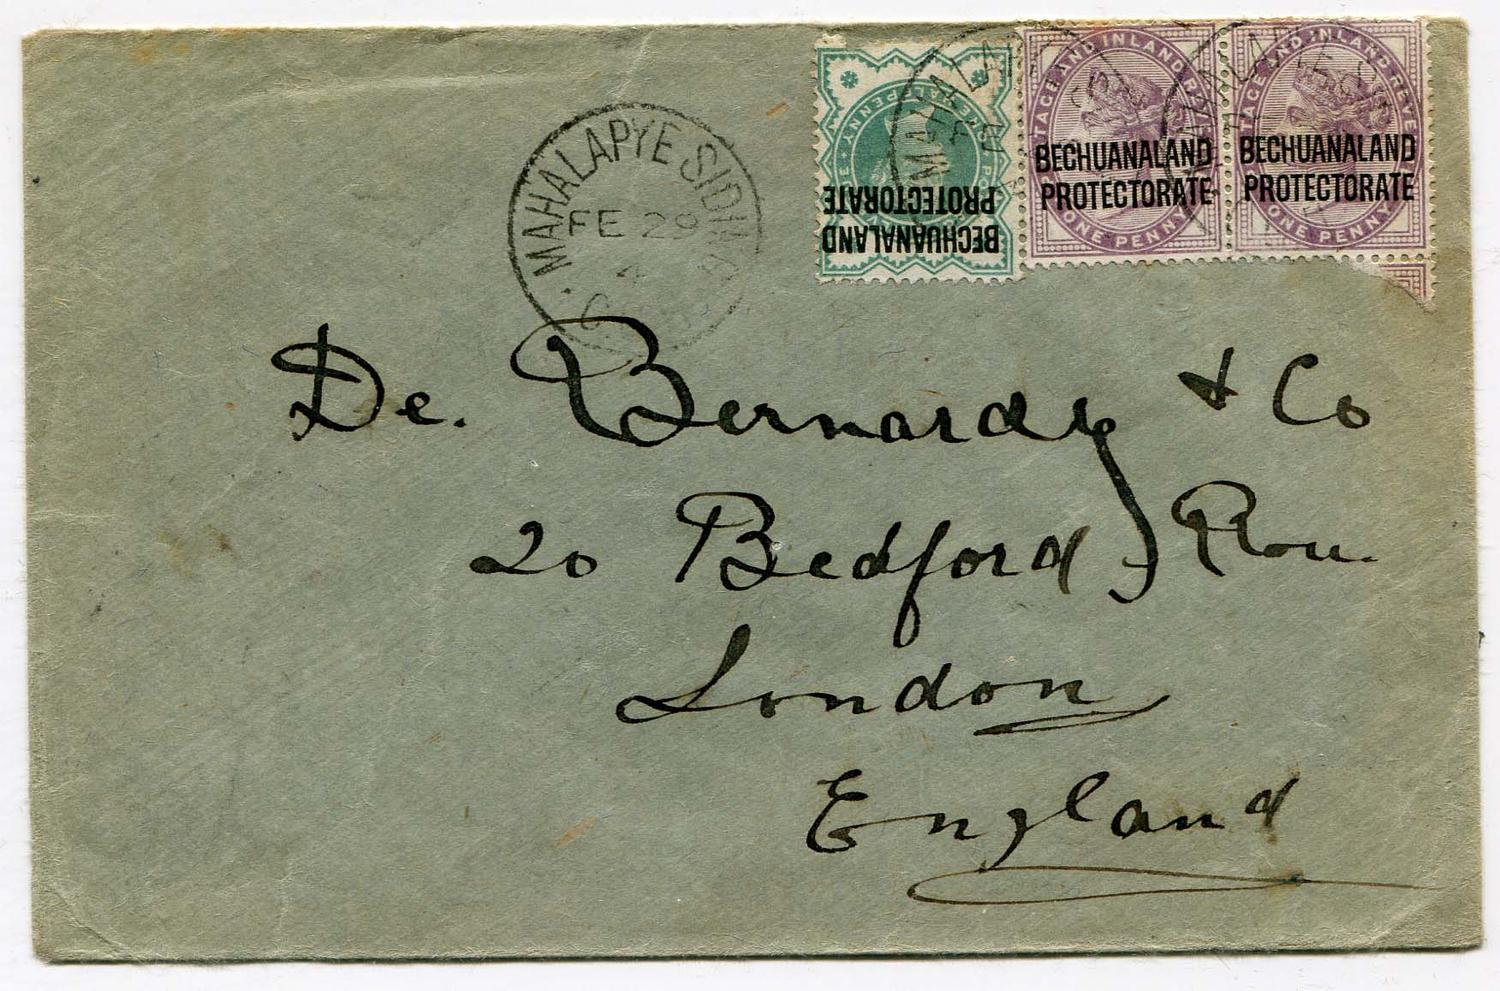 MAHALAPYE SIDING
FE 29
4
BECHUANALAND
PROTECTORATE
POSTAGE AND INLAND REVENUE
BECHUANALAND
PROTECTORATE
ONE PENNY
POSTAGE AND INLAND REVENUE
BECHUANALAND
PROTECTORATE
ONE PENNY
De. Bernardy & Co
20 Bedford Row.
London
England